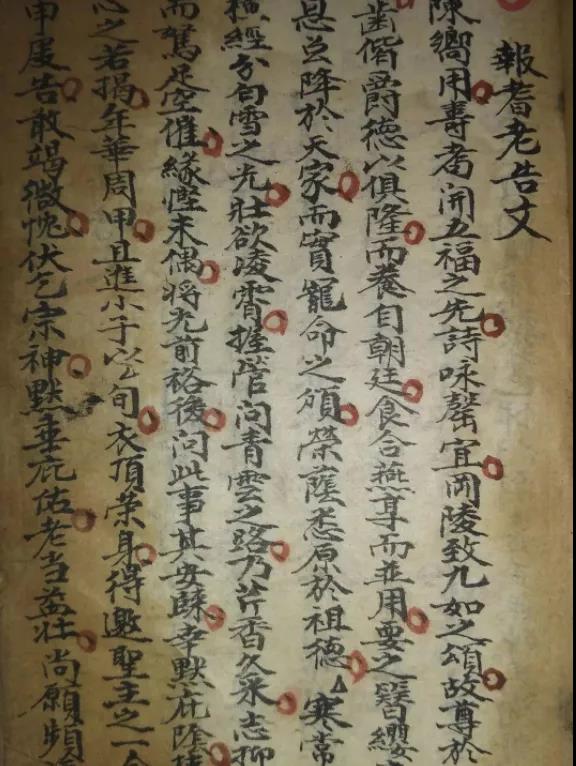 報耆老告文
陳嚮用壽耇開五福之先詩咏罄宜岡陵致九如之頌故尊於
齒偕爵德以俱隆而養自朝廷食合燕享而並用要之簪纓
悬旦降於天家而實寵命之頒榮蔭悉原於祖德某寒常
橫經分白雪之光壯欲凌霄握管問青雲之路乃芹香久采志抑
而駑足空催緣慳未偶将光前裕後問此事其安蘇幸默庇陰
之若揭年華周甲且進小子以旬衣頂榮身得邀聖主之一
申虔告敢竭微忱伏乞宗神默垂庇佑老当益壮尚願頻